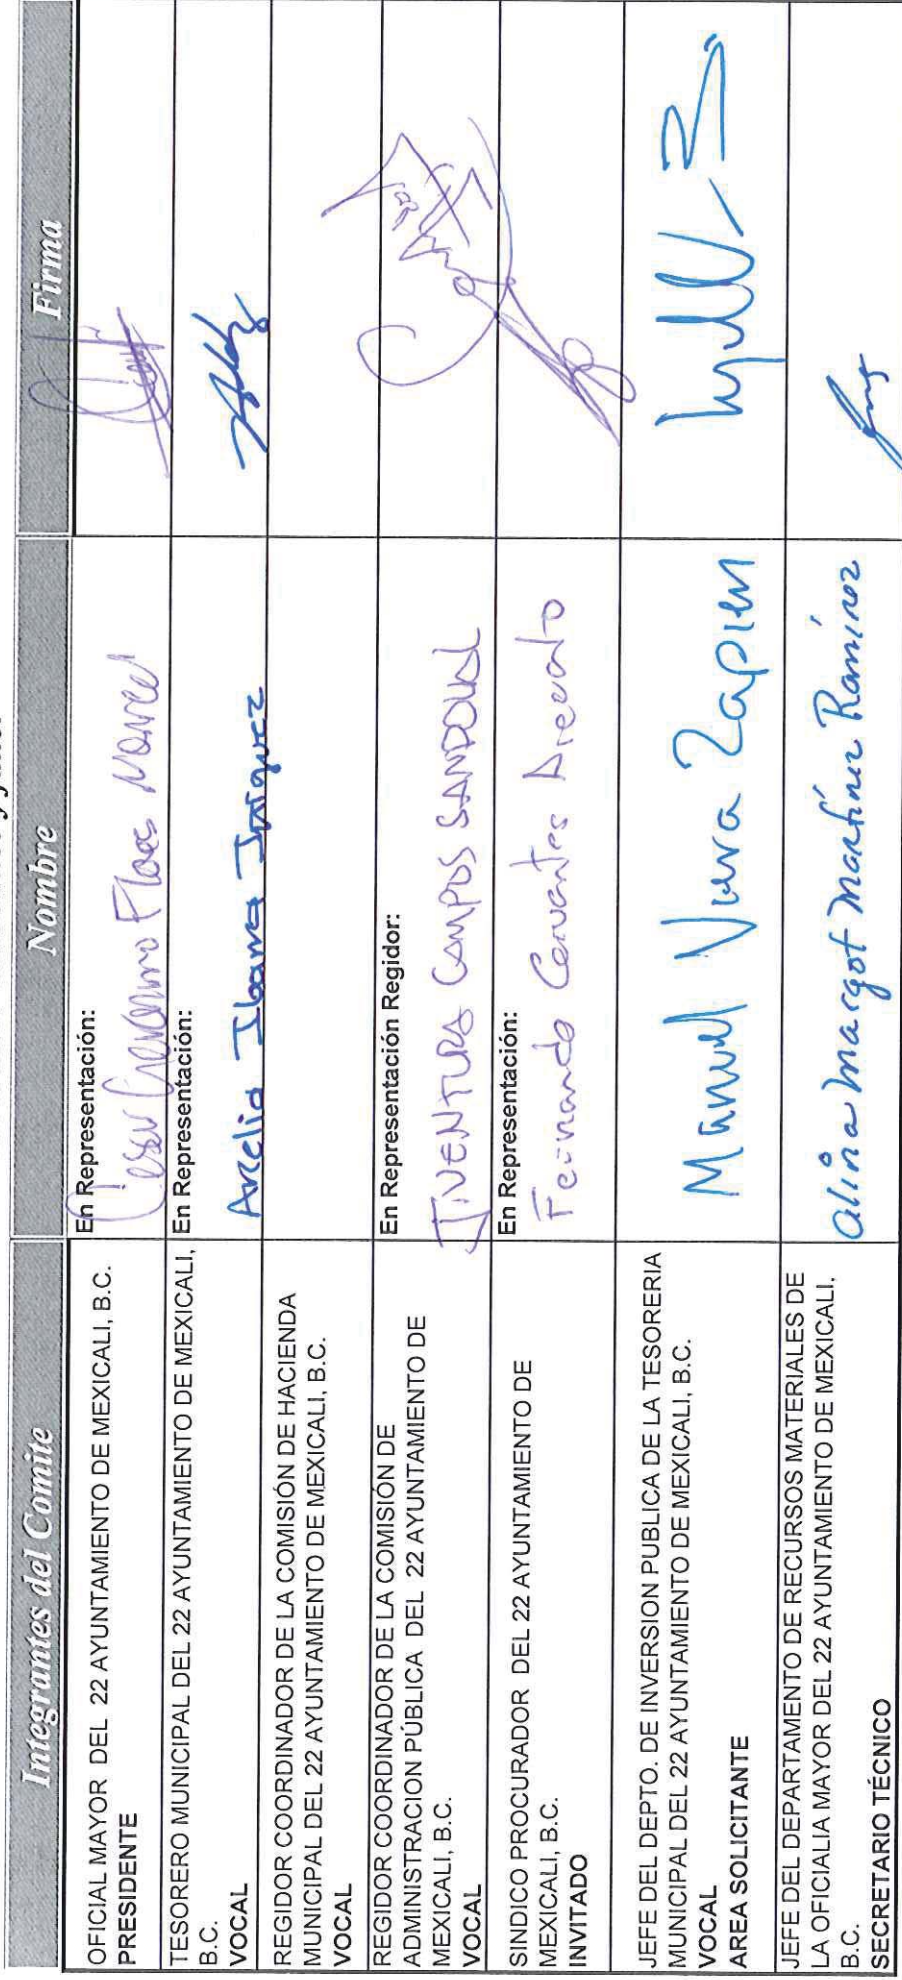 Integrantes del Comite
Nombre
Firma
OFICIAL MAYOR DEL 22 AYUNTAMIENTO DE MEXICALI, B.C.
PRESIDENTE
En Representación:
Flores
TESORERO MUNICIPAL DEL 22 AYUNTAMIENTO DE MEXICALI,
B.C.
VOCAL
En Representación:
Arcelia Ibarra Iñiguez
REGIDOR COORDINADOR DE LA COMISIÓN DE HACIENDA
MUNICIPAL DEL 22 AYUNTAMIENTO DE MEXICALI, B.C.
VOCAL
REGIDOR COORDINADOR DE LA COMISIÓN DE
ADMINISTRACION PÚBLICA DEL 22 AYUNTAMIENTO DE
MEXICALI, B.C.
VOCAL
En Representación Regidor:
JUVENTURA CAMPOS SANDOVAL
SINDICO PROCURADOR DEL 22 AYUNTAMIENTO DE
MEXICALI, B.C.
INVITADO
En Representación:
Fernando Cervantes
JEFE DEL DEPTO. DE INVERSION PUBLICA DE LA TESORERIA
MUNICIPAL DEL 22 AYUNTAMIENTO DE MEXICALI, B.C.
VOCAL
AREA SOLICITANTE
Manuel Vera Zapien
JEFE DEL DEPARTAMENTO DE RECURSOS MATERIALES DE
LA OFICIALIA MAYOR DEL 22 AYUNTAMIENTO DE MEXICALI,
B.C.
SECRETARIO TÉCNICO
Alina Margot Martínez Ramírez